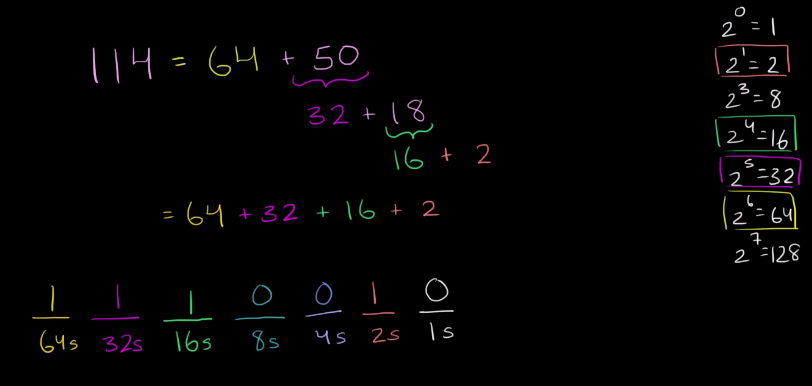 114 = 64 + 50
32 + 18
16 + 2
= 64 + 32 + 16 + 2
1 1 1 0 0 1 0
64s 32s 16s 8s 4s 2s 1s
2^0 = 1
2^1 = 2
2^3 = 8
2^4 = 16
2^5 = 32
2^6 = 64
2^7 = 128